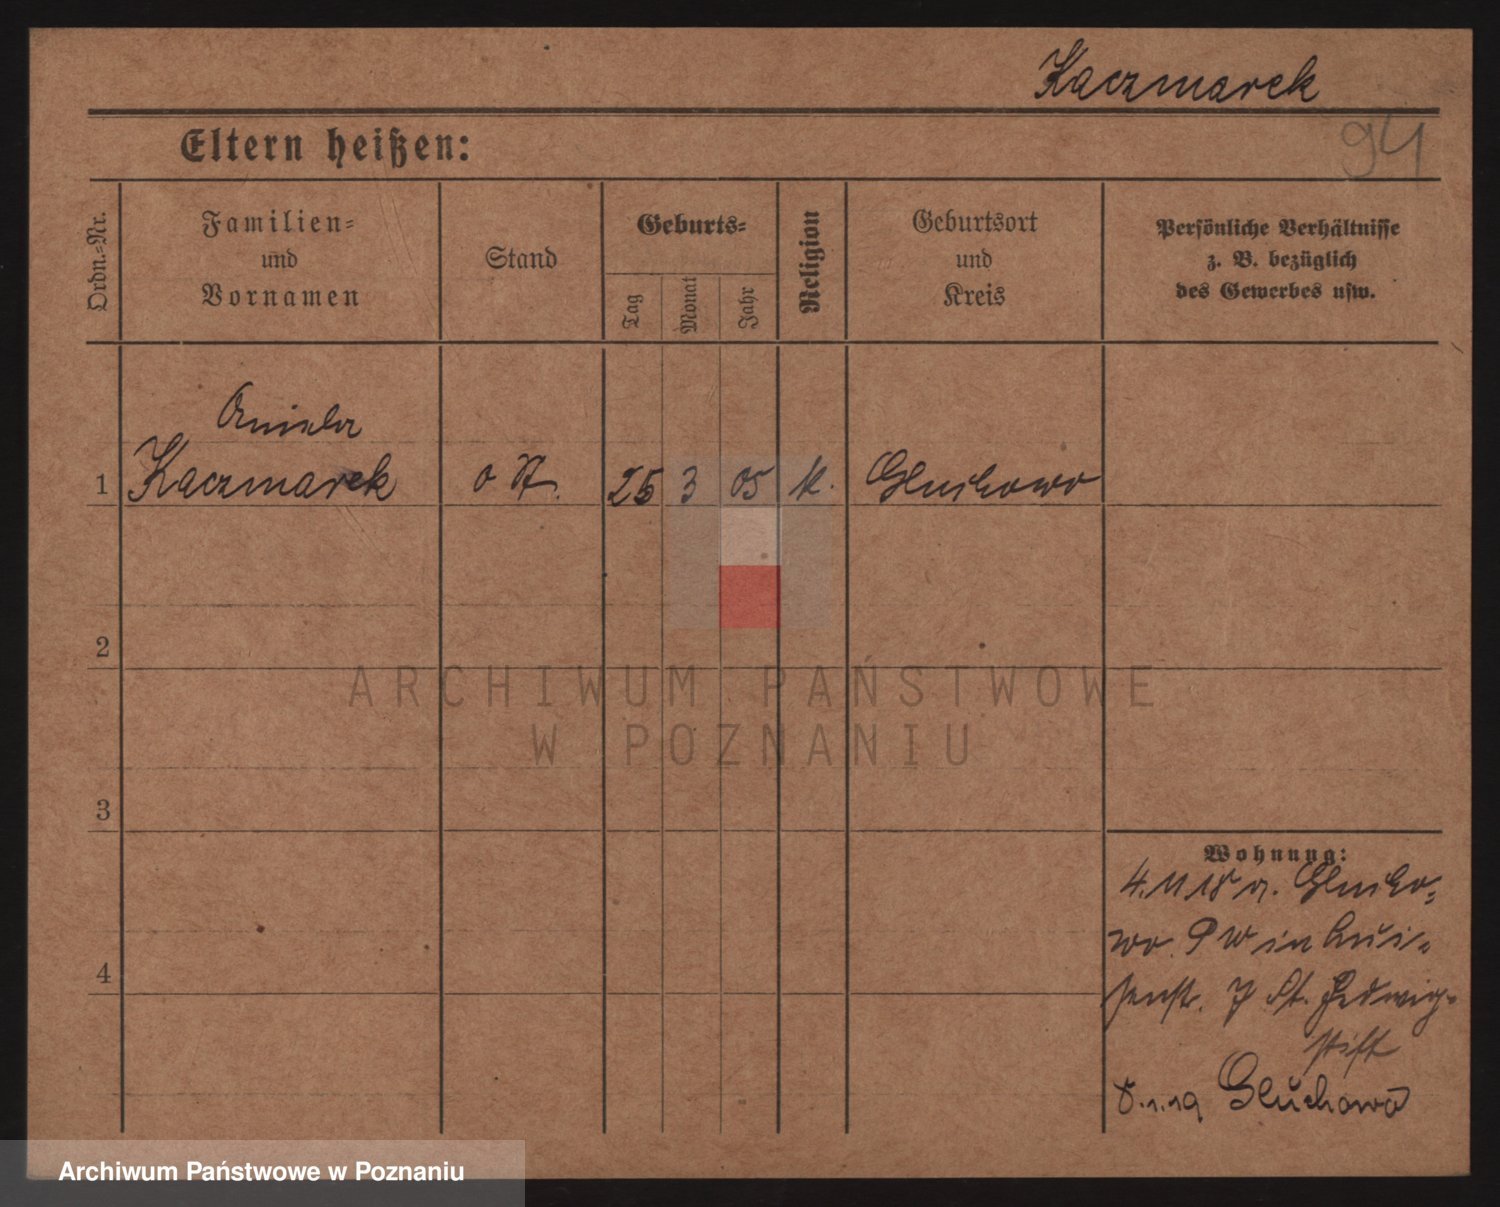 Kaczmarek
94
Eltern heißen:
Ordn.-Nr.
Familien-
und
Vornamen
Stand
Geburts-
Tag
Monat
Jahr
Religion
Geburtsort
und
Kreis
Persönliche Verhältnisse
z. B. bezüglich
des Gewerbes usw.
Aniela
1 Kaczmarek o St. 25 3 05 k. Gluchowo
2
ARCHIWUM PAŃSTWOWE
W POZNANIU
3
Wohnung:
4. 11 18 a. Glucho-
wo. P W in Lui-
senstr. 7 St. Hedwig-
stift
8.1.19 Gluchowo
4
Archiwum Państwowe w Poznaniu